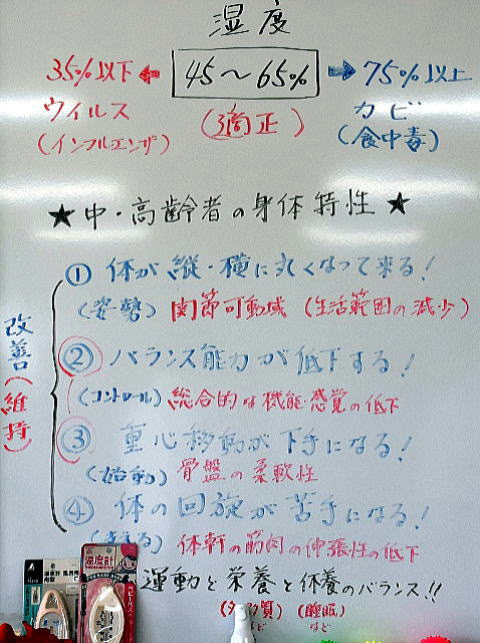 湿度
35%以下 ← 45～65% → 75%以上
ウィルス (適正) カビ
(インフルエンザ) (食中毒)
★中・高齢者の身体特性★
改善(維持)
① 体が縦・横に丸くなって来る!
(姿勢) 関節可動域 (生活範囲の減少)
② バランス能力が低下する!
(コントロール) 総合的な機能・感覚の低下
③ 重心移動が下手になる!
(始動) 骨盤の柔軟性
④ 体の回旋が苦手になる!
体幹の筋肉の伸張性の低下
運動と栄養と休養のバランス!!
(タンパク質) (睡眠)
など など
温度計